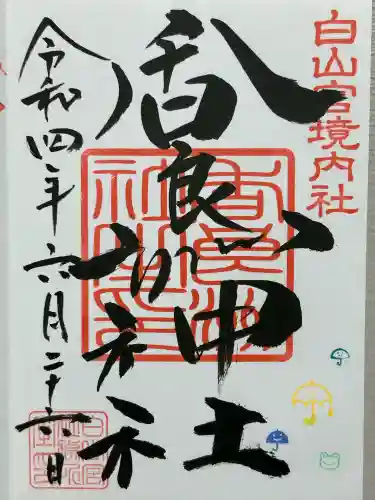 白山宮境内社
香良洲神社
令和四年六月二十六日